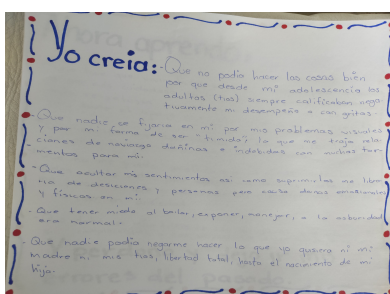 Yo creía: -Que no podía hacer las cosas bien
por que desde mi adolescencia los
adultos (tías) siempre calificaban nega
tivamente mi desempeño o con gritos.
- Que nadie se fijaria en mi por mis problemas visuales
y por mi forma de ser "timida" lo que me trajo rela
ciones de noviazgo dañinas e indebidas con muchos tor
mentos para mi.
- Que ocultar mis sentimientos asi como suprimirlos me libra
ria de desiciones y personas para causar daños emocionales
y físicos en mi.
- Que tener miedo al bailar, exponer, manejar, o la autoridad
era normal.
- Que nadie podia negarme hacer lo que yo quisiera ni mi
madre ni mis tias, libertad total, hasta el nacimiento de mi
hija.